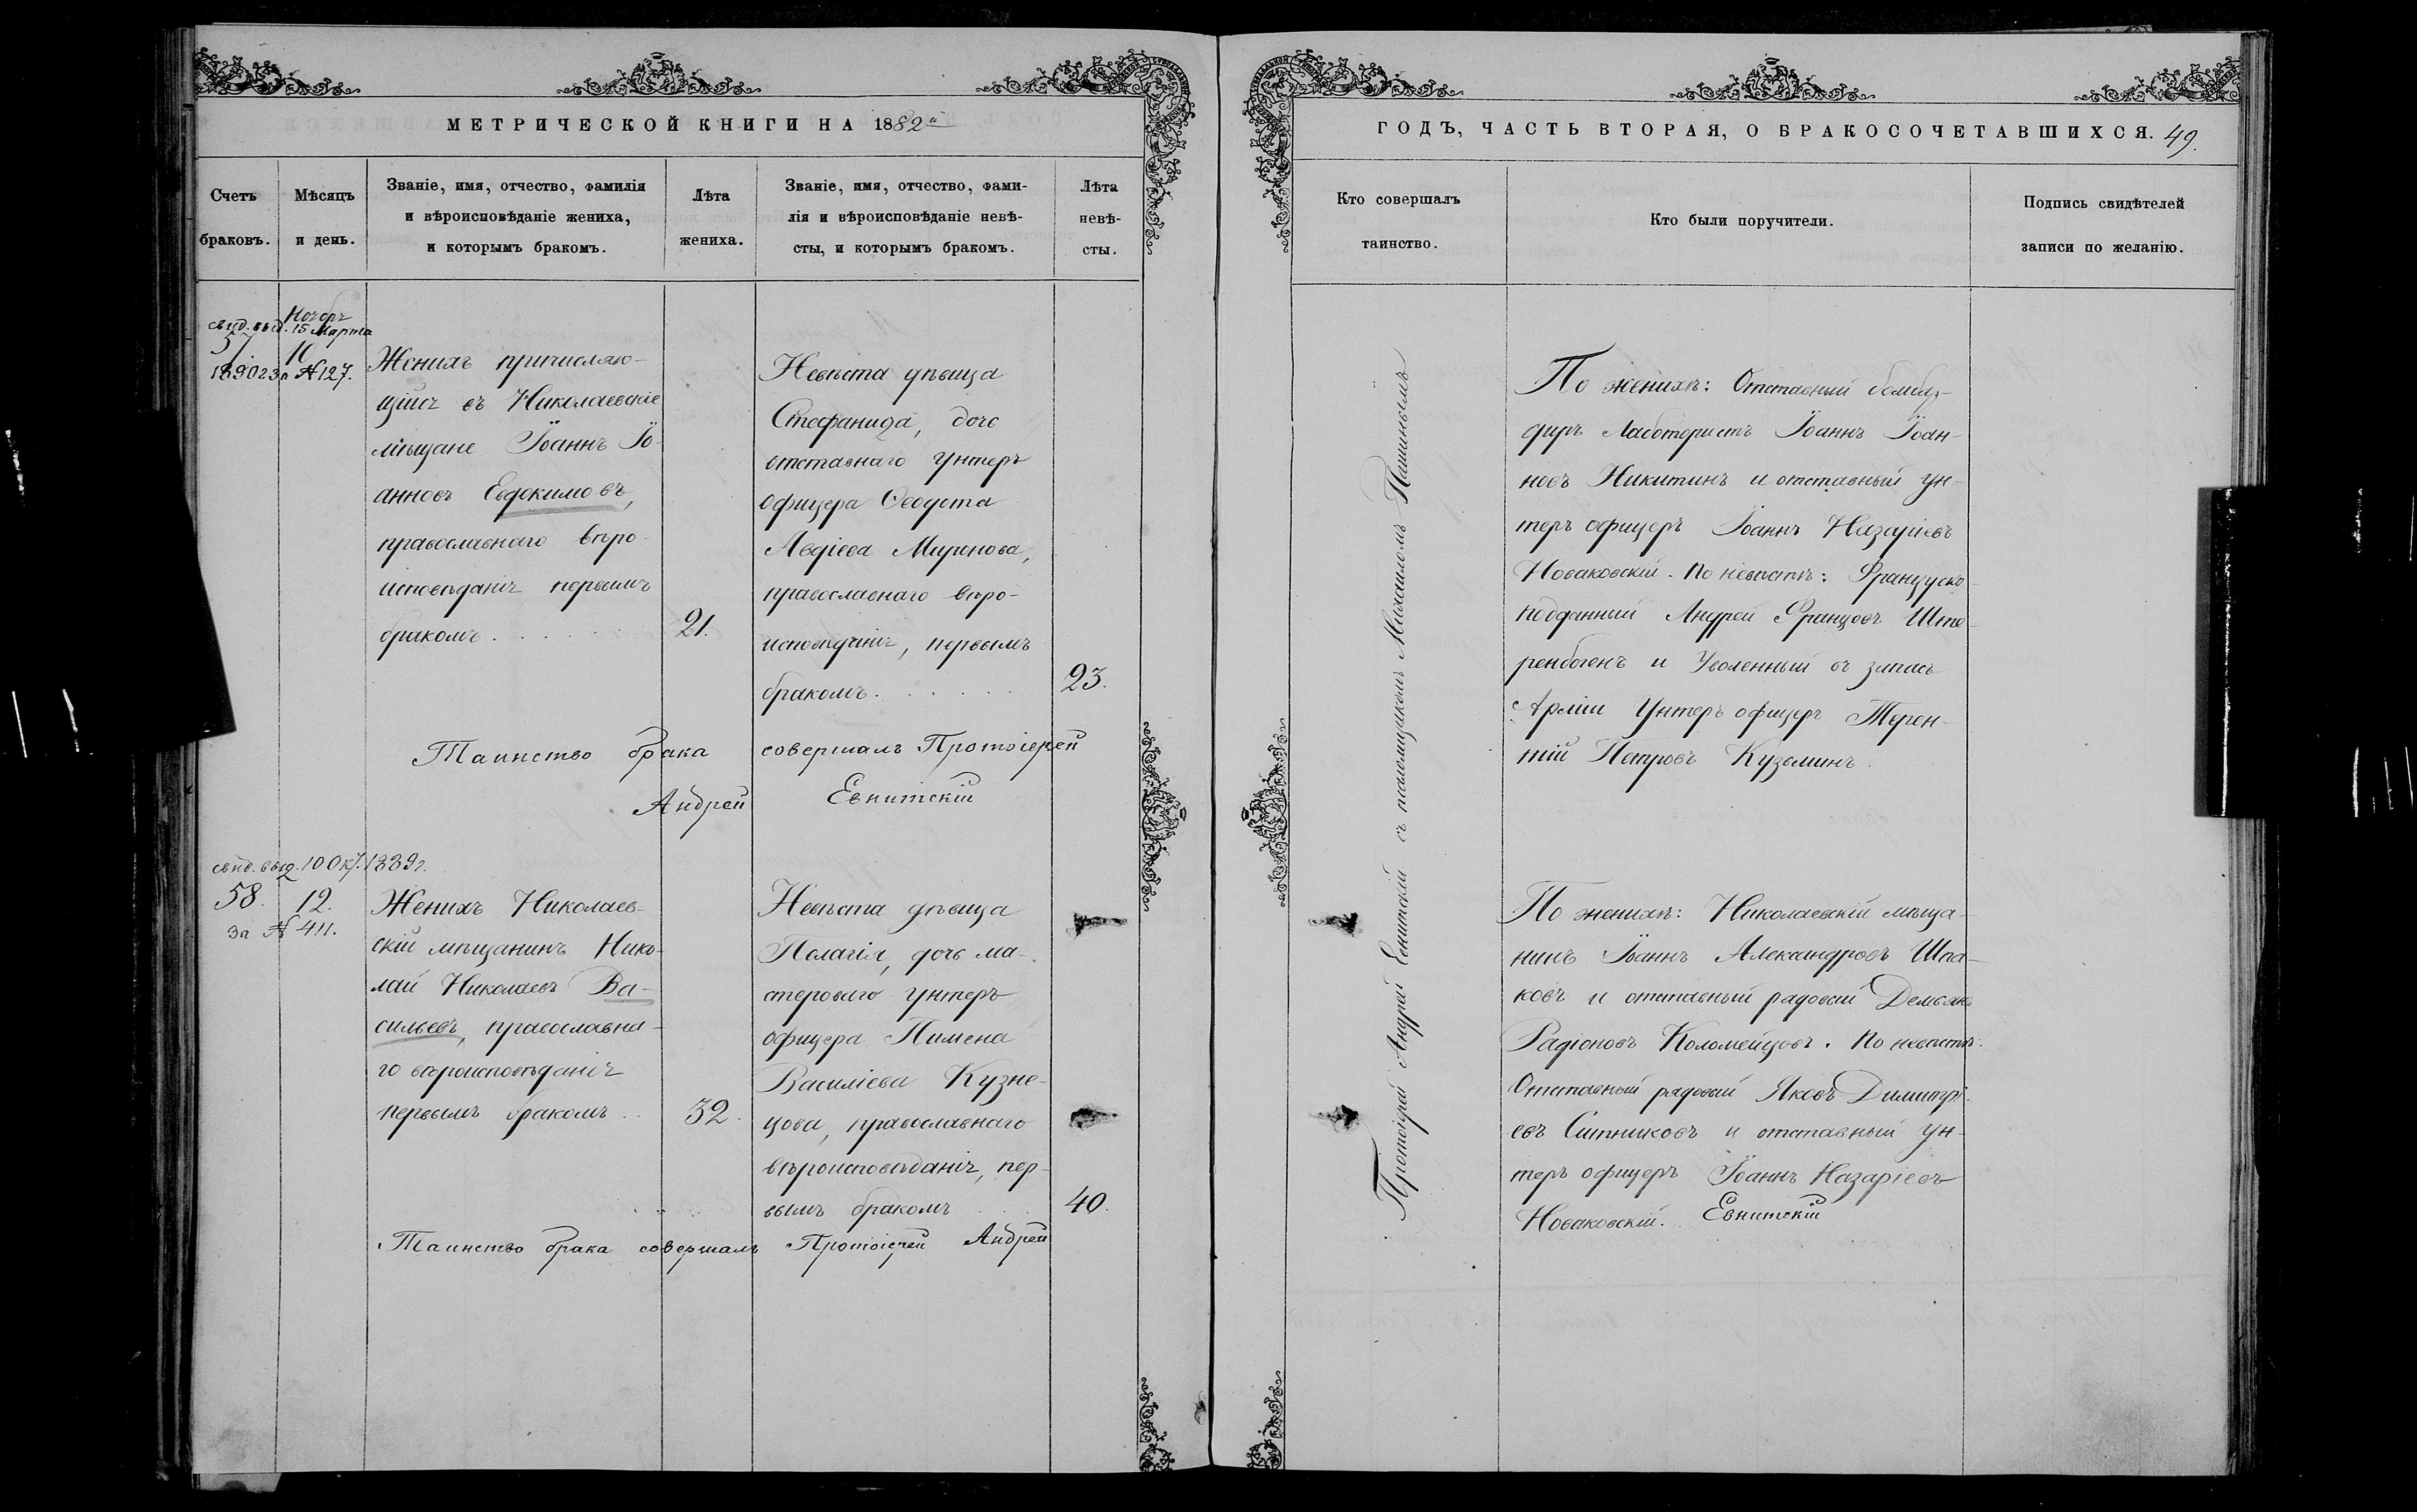 МЕТРИЧЕСКОЙ КНИГИ НА 1882й
Счетъ браковъ.
Мѣсяцъ и день.
Званіе, имя, отчество, фамилія
и вѣроисповѣданіе жениха,
и которымъ бракомъ.
Лѣта жениха.
Званіе, имя, отчество, фами-
лія и вѣроисповѣданіе невѣ-
сты, и которымъ бракомъ.
Лѣта невѣ-
сты.
Ноябрь
свид. выд. 15 Марта
57 10
1890 за №127.
Женихъ причисляю-
щійся въ Николаевскіе
мѣщане Іоаннъ Іо-
анновъ Евдокимовъ,
православнаго вѣро-
исповѣданія первымъ
бракомъ . . . . . .
21.
Невѣста дѣвица
Стефанида, дочь
отставнаго унтеръ
офицера Ѳеодота
Авдіева Миронова,
православнаго вѣро-
исповѣданія, первымъ
бракомъ . . . . . .
23.
Таинство брака совершалъ Протоіерей
Андрей Евнитскій
свид. выд. 10 Окт. 1889г.
58. 12.
За № 411.
Женихъ Николаев-
скій мѣщанинъ Нико-
лай Николаевъ Ва-
сильевъ, православна-
го вѣроисповѣданія
первымъ бракомъ . .
32.
Невѣста дѣвица
Пелагія, дочь ма-
стероваго унтеръ
офицера Пимена
Василіева Кузне-
цова, православнаго
вѣроисповѣданія, пер-
вымъ бракомъ . . .
40.
Таинство брака совершалъ Протоіерей Андрей
Евнитскій
ГОДЪ, ЧАСТЬ ВТОРАЯ, О БРАКОСОЧЕТАВШИХСЯ. 49.
Кто совершалъ
таинство.
Кто были поручители.
Подпись свидѣтелей
записи по желанію.
Протоіерей Андрей Евнитскій съ псаломщикомъ Михаиломъ
По женихѣ: Отставный бомбар-
диръ Іоаннъ Іоан-
новъ Никитинъ и отставный ун-
теръ офицеръ Іоаннъ Назаріевъ
Новаковскій. По невѣстѣ: Француско-
подданный Андрей Францовъ Ште-
ренбогенъ и Уволенный въ запасъ
Арміи Унтеръ офицеръ Терен-
тій Петровъ Кузьминъ.
По женихѣ: Николаевскій мѣща-
нинъ Іоаннъ Александровъ Шпа-
ковъ и отставный рядовой Демьянъ
Радіоновъ Коломейцовъ. По невѣстѣ:
Отставный рядовой Яковъ Димитрі-
евъ Ситниковъ и отставный ун-
теръ офицеръ Іоаннъ Назаріевъ
Новаковскій.